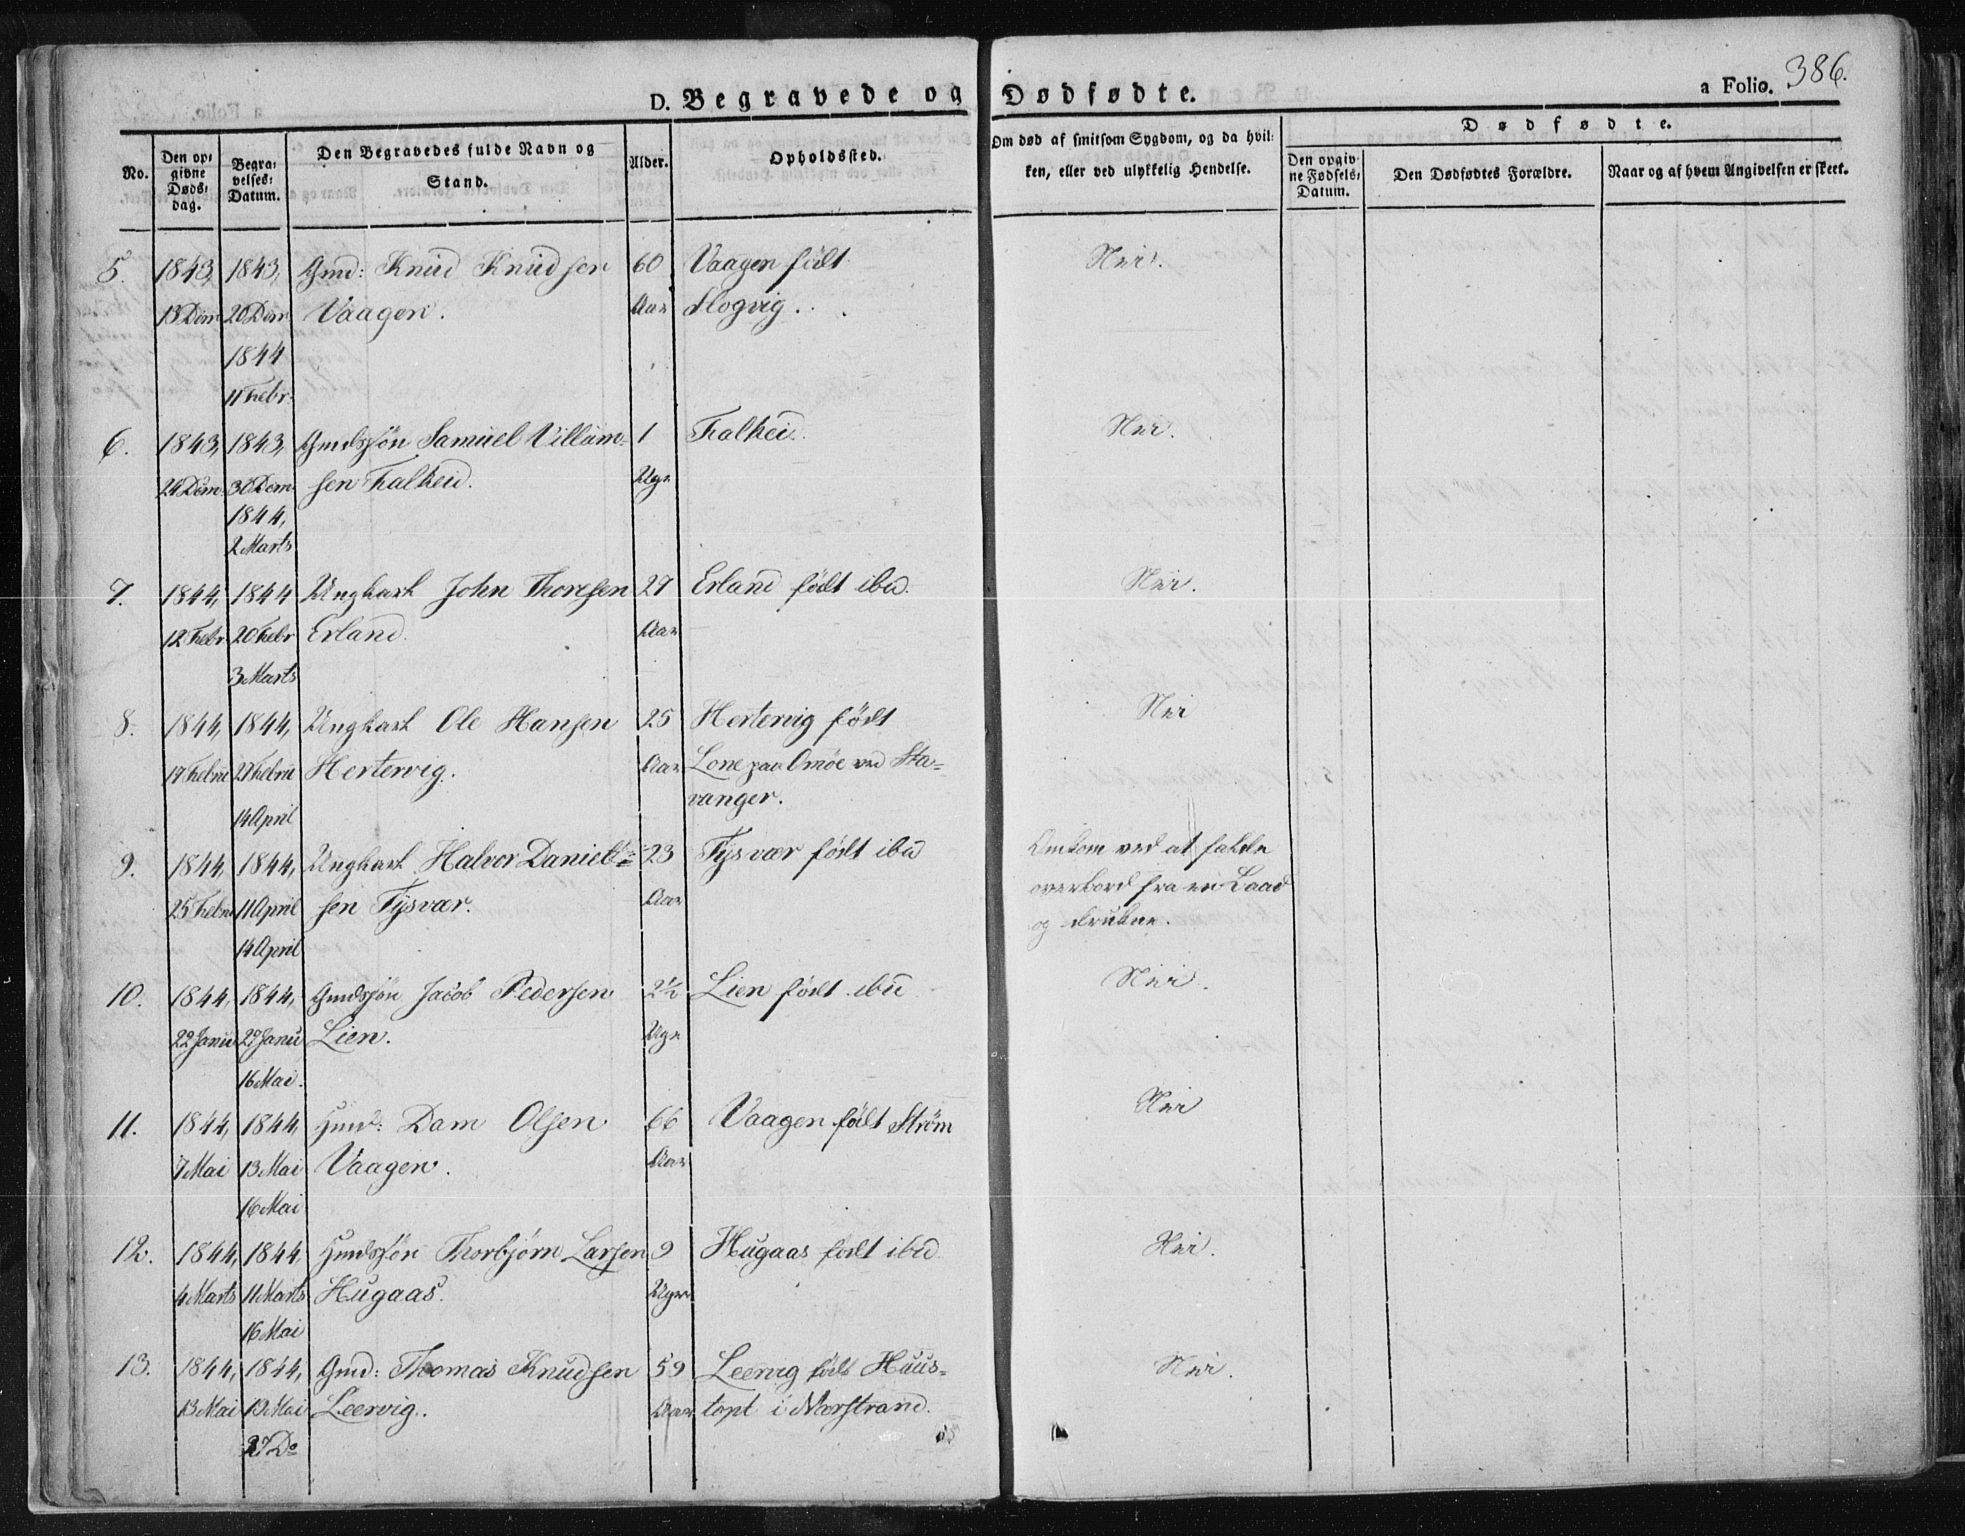 386.
D. Begravede og Dødfødte.
a Folio.
No.
Den op-
givne
Døds-
dag.
Begra-
velses-
Datum.
Den Begravedes fulde Navn og
Stand.
Alder.
Opholdssted.
Om død af smitsom Sygdom, og da hvil-
ken, eller ved ulykkelig Hendelse.
Dødfødte.
Den opgiv-
ne Fødsels-
Datum.
Den Dødfødtes Forældre.
Naar og af hvem Angivelsen er skeet.
5. 1843, 1843, Gmd: Knud Knudsen 60 Vaagen født Nei.
13 Dem 20 Dem Vaagen. Aar Slogvig.
1844
11 Febr.
6. 1843, 1843, Gmdssøn Samuel Villum- 1 Falkei. Nei.
24 Dem 30 Dem sen Falkeid. Uge
1844,
2 Marts
7. 1844, 1844 Ungkarl John Thoresen 27 Erland født ibd. Nei.
12 Febr 20 Febr Erland. Aar
3 Marts
8. 1844, 1844, Ungkarl Ole Hansen 25 Hertervig født Nei
17 Febru 27 Febru Hertervig. Aar Lone paa Omøe ved Sta-
vanger.
14 April
9. 1844, 1844, Ungkarl Halvor Daniel- 23 Tysvær født ibd Omkom ved at falde
overbord fra en Baad
25 Febru 11 April sen Tysvær. Aar og drukne.
14 April
10. 1844, 1844, Gmdssøn Jacob Pedersen 2½ Lien født ibd Nei.
22 Janu 29 Janu Lien. Uge
16 Mai.
11. 1844, 1844, Huusm: Dam Olsen 66 Vaagen født Strøm Nei
7 Mai 13 Mai Vaagen. Aar
16 Mai
12. 1844, 1844, Hmdssøn Thorbjørn Larsen 9 Hugaas født ibd Nei.
4 Marts 11 Marts Hugaas. Uger
16 Mai
13. 1844, 1844, Gmd: Thomas Knudsen 59 Leervig født Huus- Nei.
13 Mai 19 Mai Leervig. Aar topt i Nærstrand.
27 Do